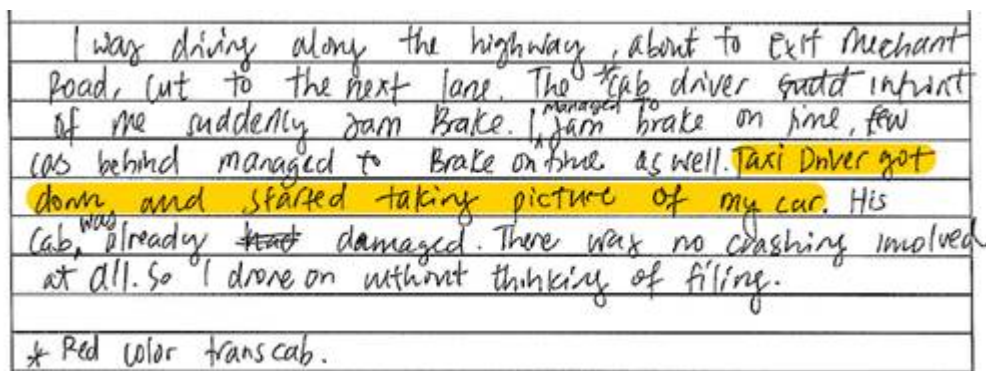 I was driving along the highway, about to Exit Mechant
Road, cut to the next lane. The *cab driver sudd infront
of me suddenly Jam Brake. I managed to jam brake on time, few
cars behind managed to Brake on time as well. Taxi Driver got
down and started taking picture of my car. His
Cab, was already had damaged. There was no crashing involved
at all. So I drove on without thinking of filing.
* Red color transcab.